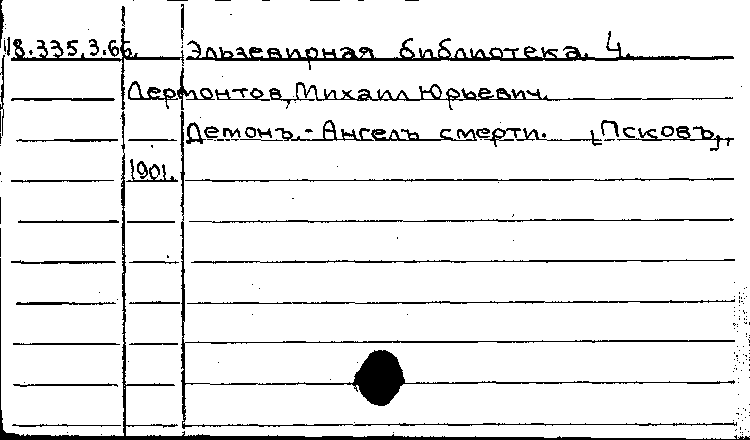 18.335.3.66. Эльзевирная библиотека. 4.
Лермонтов, Михаил Юрьевич.
Демонъ.- Ангелъ смерти. [Псковъ],
1901.